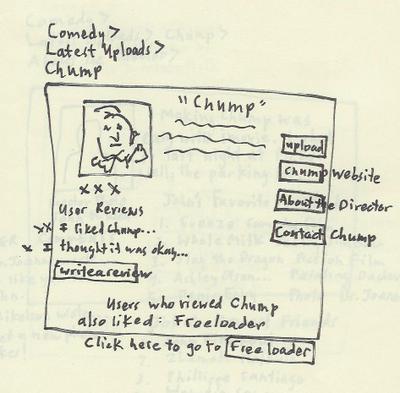 Comedy >
Latest Uploads >
Chump
"Chump"
upload
chump website
About the Director
Contact Chump
x x x
User Reviews
xx I liked Chump...
x I thought it was okay...
write a review
Users who viewed Chump
also liked: Freeloader
Click here to go to Freeloader